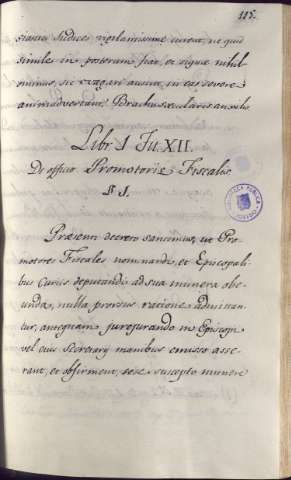 115.
siastici Judices vigilantissime curent, ne quid
simile in posterum fiat, et siquae nihil
ominus, sic evagari ausint, in eas severe
animadvertant Brachii saecularis auxilio
Libr. 1 Tit. XII.
De officio Promotoris Fiscalis
§ 1.
Praesenti decreto sancimus, ut Pro-
motores Fiscales nominandi, et Episcopali-
bus Curiis deputandi ad sua munera obe-
unda, nulla prorsus ratione admittan-
tur, antequam jurejurando in Episcopi,
vel ejus Secretarij manibus emisso asse-
rant, et obfirment, sese suscepto munere